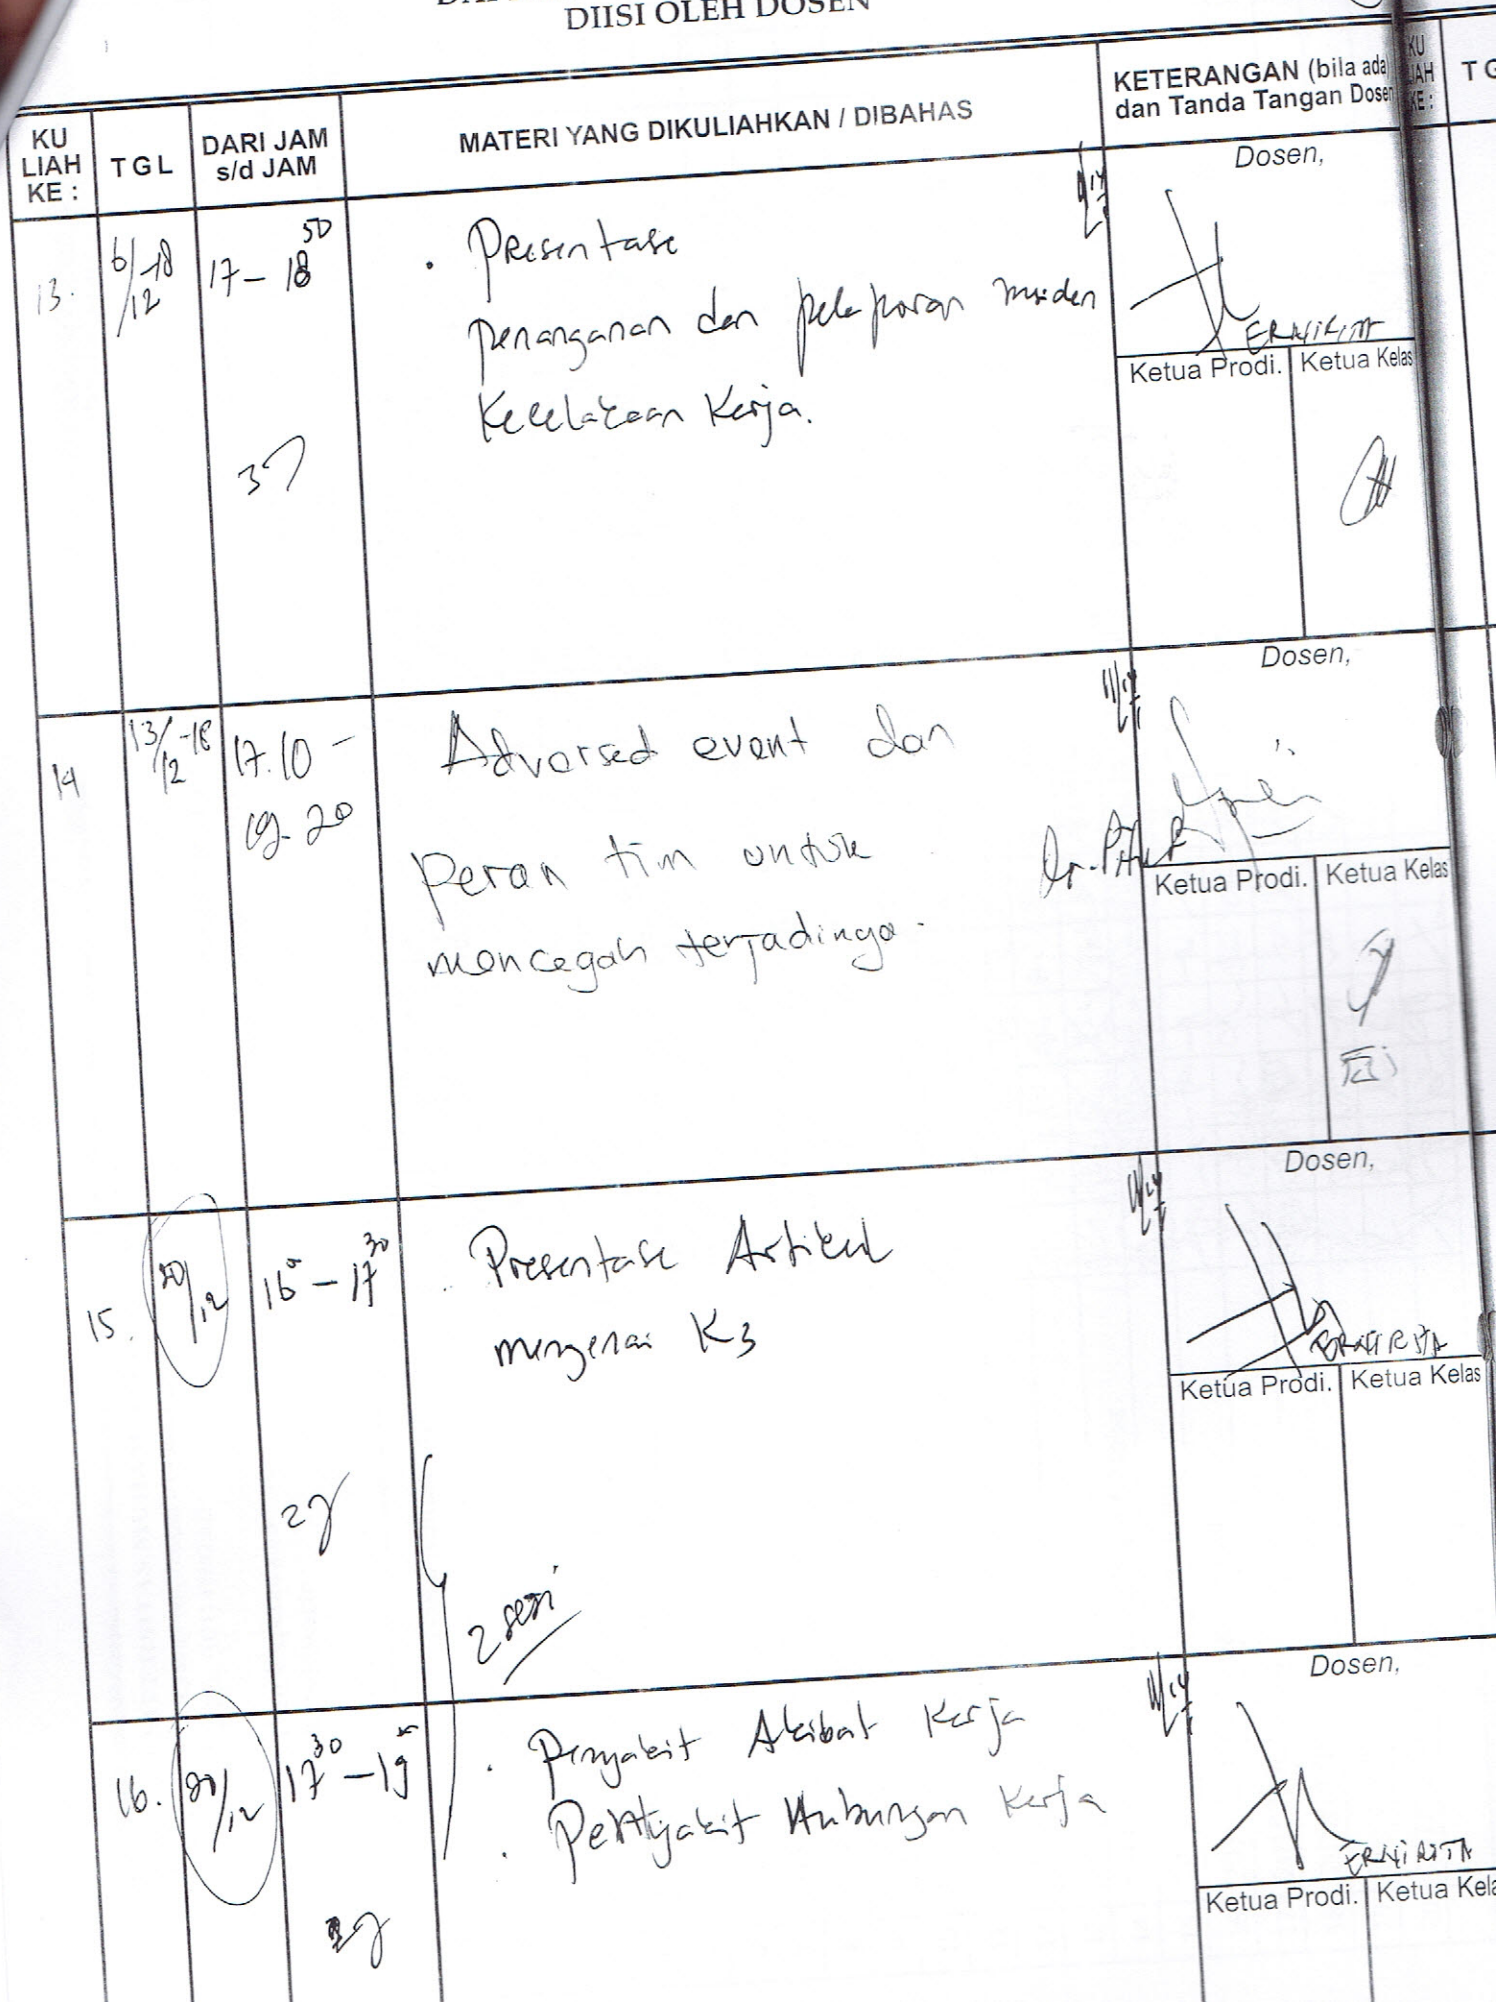 DIISI OLEH DOSEN
KU LIAH KE :
TGL
DARI JAM s/d JAM
MATERI YANG DIKULIAHKAN / DIBAHAS
KETERANGAN (bila ada)
dan Tanda Tangan Dosen
KU
LIAH
KE :
TG
13.
6/12 -18
17 - 18 50
. Presentase
penanganan dan pelaporan insiden
Kecelakaan Kerja.
37
Dosen,
ERNIRITA
Ketua Prodi.
Ketua Kelas
14
13/12 -18
17.10 -
19.20
Adversed event dan
peran tim untuk
mencegah terjadinya.
Dosen,
Ketua Prodi.
Ketua Kelas
15.
20/12
16 - 17 30
. Presentase Artikel
mengenai K3
2 sesi
Dosen,
ERNIRITA
Ketua Prodi.
Ketua Kelas
16.
20/12
17 30 - 19
. Penyakit Akibat Kerja
. Penyakit Hubungan Kerja
Dosen,
ERNIRITA
Ketua Prodi.
Ketua Kela